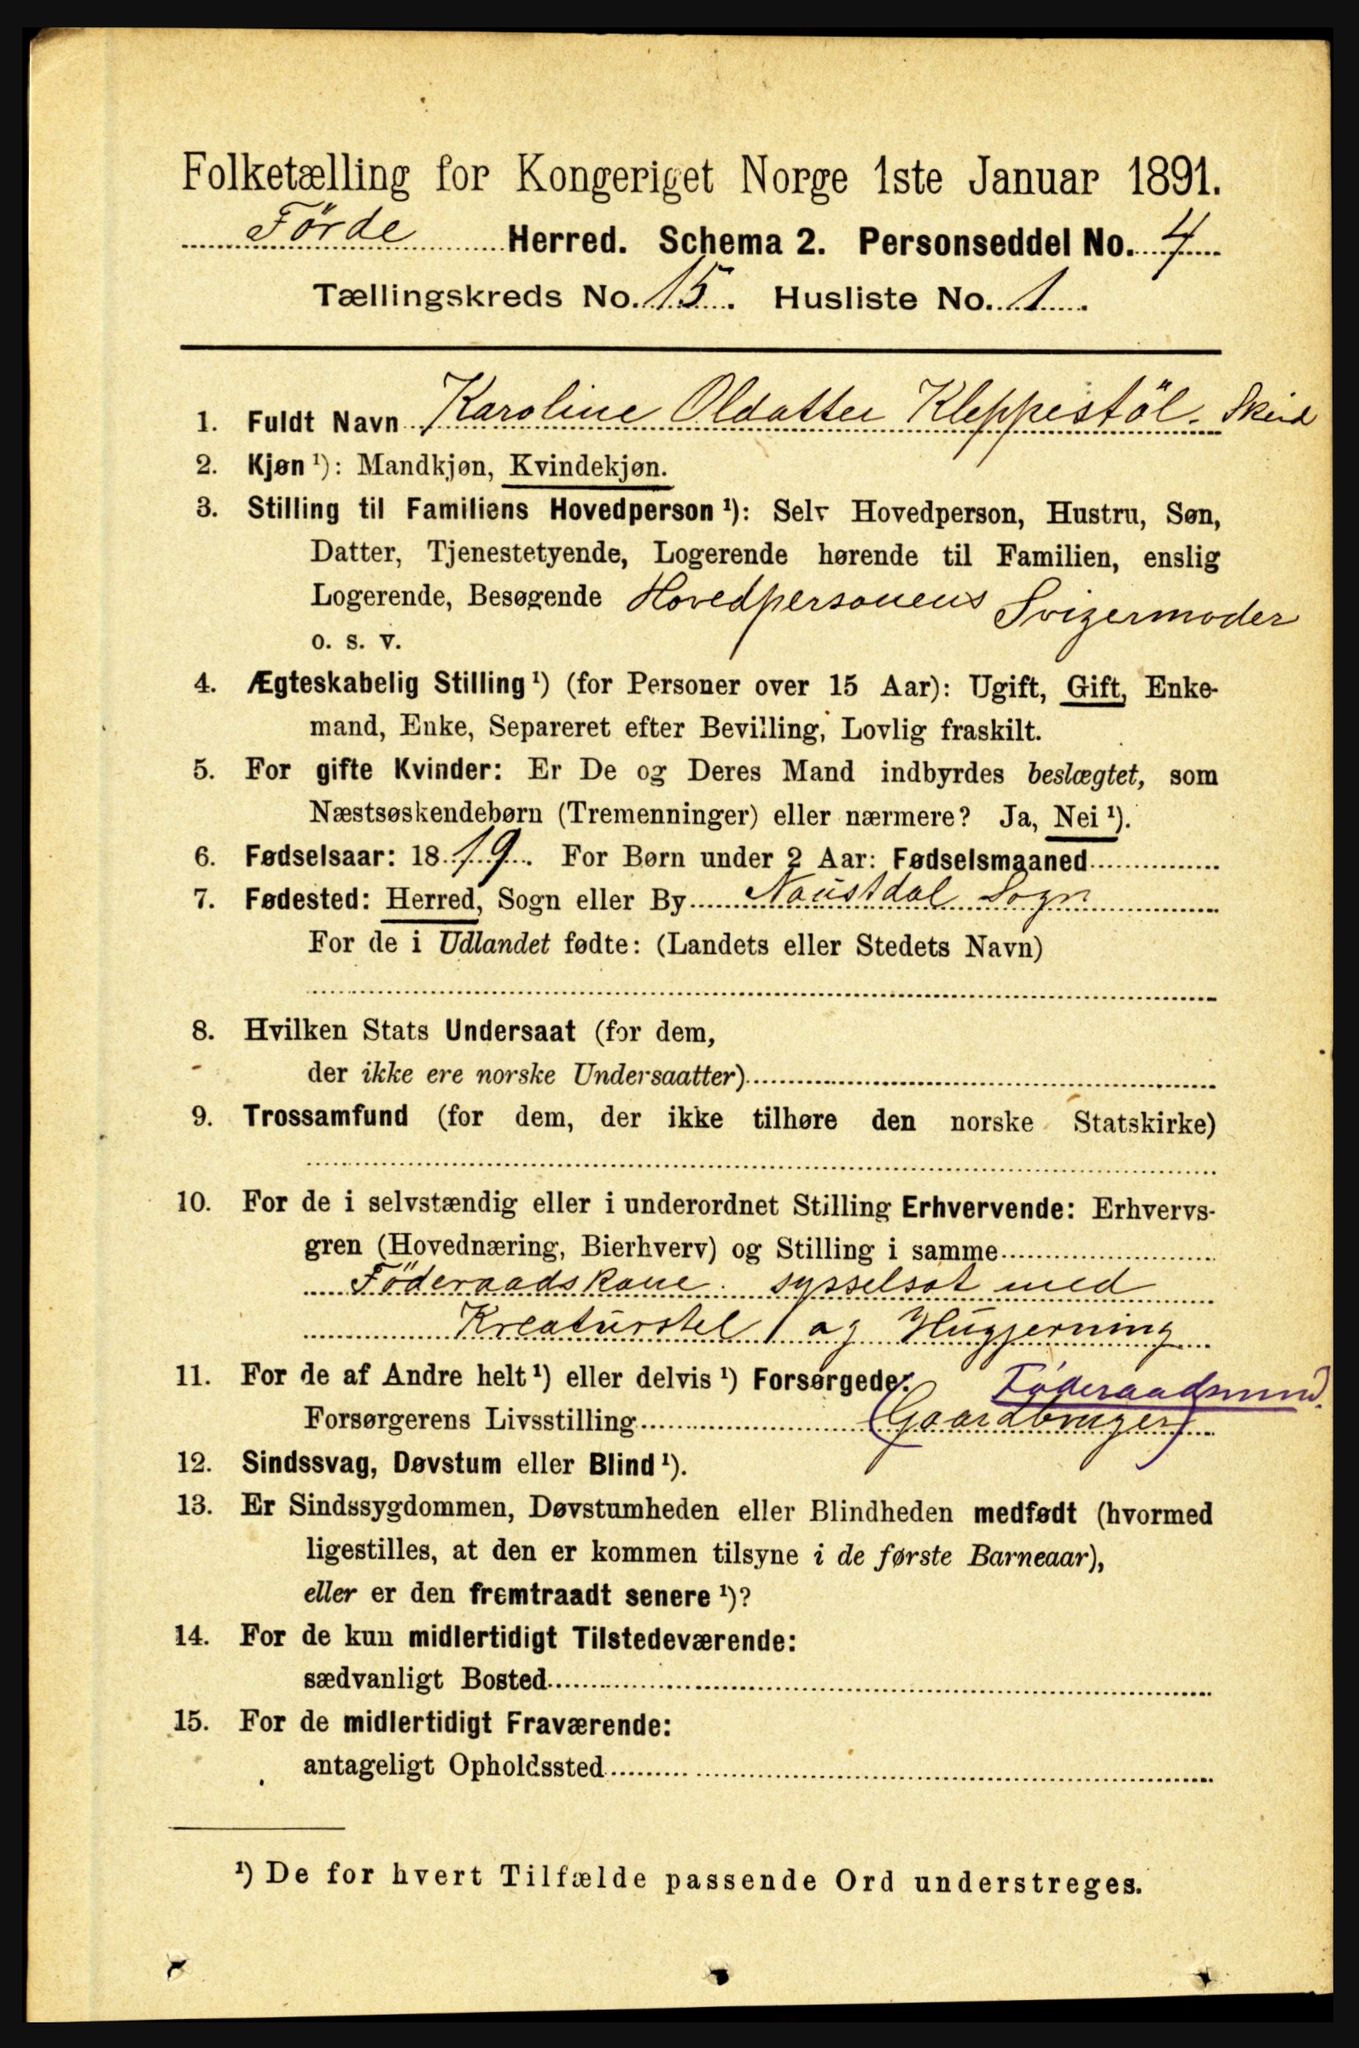 Folketælling for Kongeriget Norge 1ste Januar 1891.
Førde Herred. Schema 2. Personseddel No. 4
Tællingskreds No. 15. Husliste No. 1.
1. Fuldt Navn Karoline Oldatter Kleppestöl.
2. Kjøn ¹): Mandkjøn, Kvindekjøn.
3. Stilling til Familiens Hovedperson ¹): Selv Hovedperson, Hustru, Søn,
Datter, Tjenestetyende, Logerende hørende til Familien, enslig
Logerende, Besøgende Hovedpersonens Svigermoder
o. s. v.
4. Ægteskabelig Stilling ¹) (for Personer over 15 Aar): Ugift, Gift, Enke-
mand, Enke, Separeret efter Bevilling, Lovlig fraskilt.
5. For gifte Kvinder: Er De og Deres Mand indbyrdes beslægtet, som
Næstsøskendebørn (Tremenninger) eller nærmere? Ja, Nei ¹).
6. Fødselsaar: 1819. For Børn under 2 Aar: Fødselsmaaned
7. Fødested: Herred, Sogn eller By Naustdal Sogn
For de i Udlandet fødte: (Landets eller Stedets Navn)
8. Hvilken Stats Undersaat (for dem,
der ikke ere norske Undersaatter)
9. Trossamfund (for dem, der ikke tilhøre den norske Statskirke)
10. For de i selvstændig eller i underordnet Stilling Erhvervende: Erhvervs-
gren (Hovednæring, Bierhverv) og Stilling i samme
Föderaadskone sysselsat med
Kreaturstel og Husgjerning
11. For de af Andre helt ¹) eller delvis ¹) Forsørgede: Føderaadsmand.
Forsørgerens Livsstilling (Gaardbruger)
12. Sindssvag, Døvstum eller Blind ¹).
13. Er Sindssygdommen, Døvstumheden eller Blindheden medfødt (hvormed
ligestilles, at den er kommen tilsyne i de første Barneaar),
eller er den fremtraadt senere ¹)?
14. For de kun midlertidigt Tilstedeværende:
sædvanligt Bosted
15. For de midlertidigt Fraværende:
antageligt Opholdssted
¹) De for hvert Tilfælde passende Ord understreges.